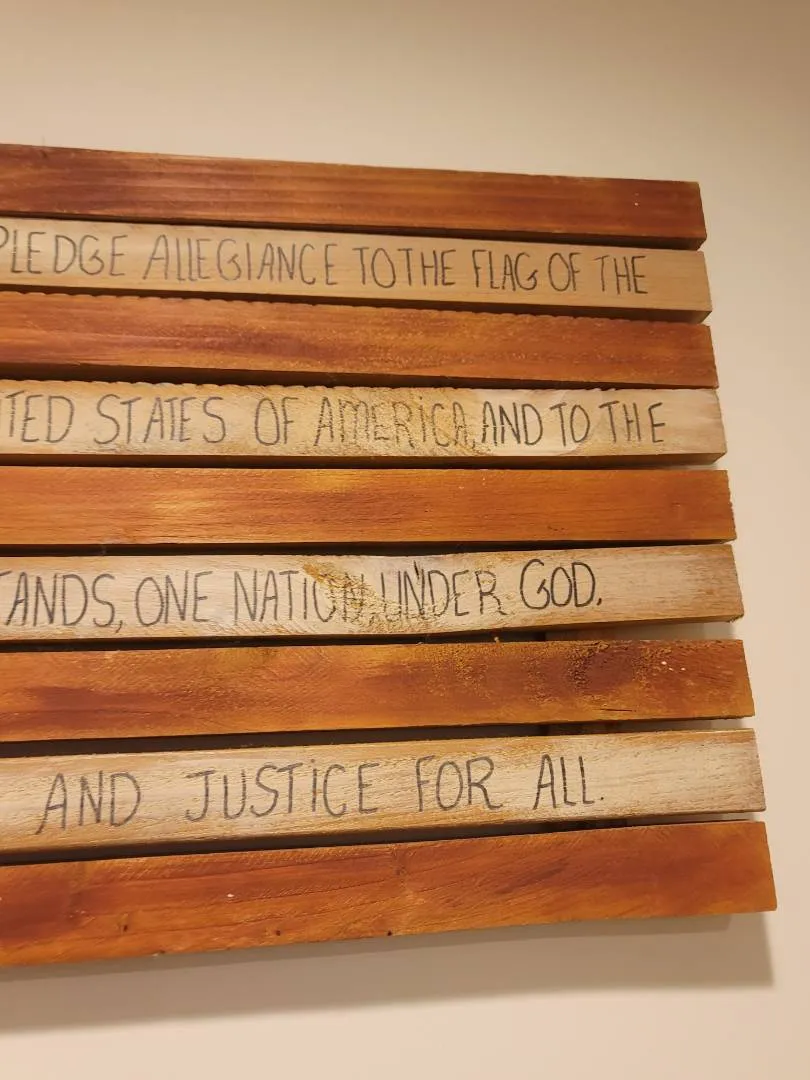 PLEDGE ALLEGIANCE TO THE FLAG OF THE
TED STATES OF AMERiCA, AND TO THE
TANDS, ONE NATION, UNDER GOD,
AND JUSTiCE FOR ALL.